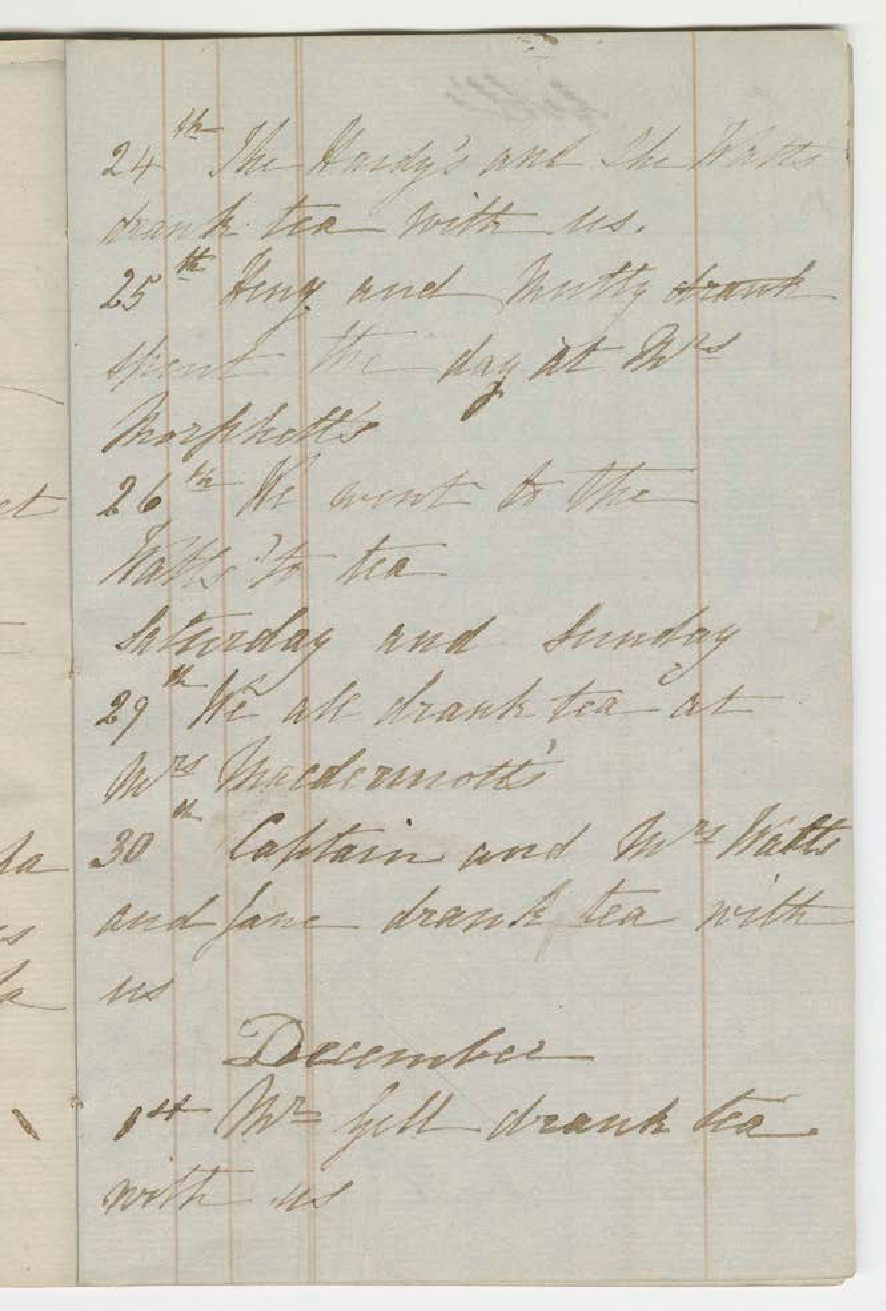 24th The Hardy's and the Watts
drank tea with us.
25th Heny and Mutty drank
spent the day at Mrs
Morphett's
26th We went to the
Watts' to tea
Saturday and Sunday
29th We all drank tea at
Mrs Macdermott's
30th Captain and Mrs Watts
and Jane drank tea with
us
December
1st Mr Gell drank tea
with us